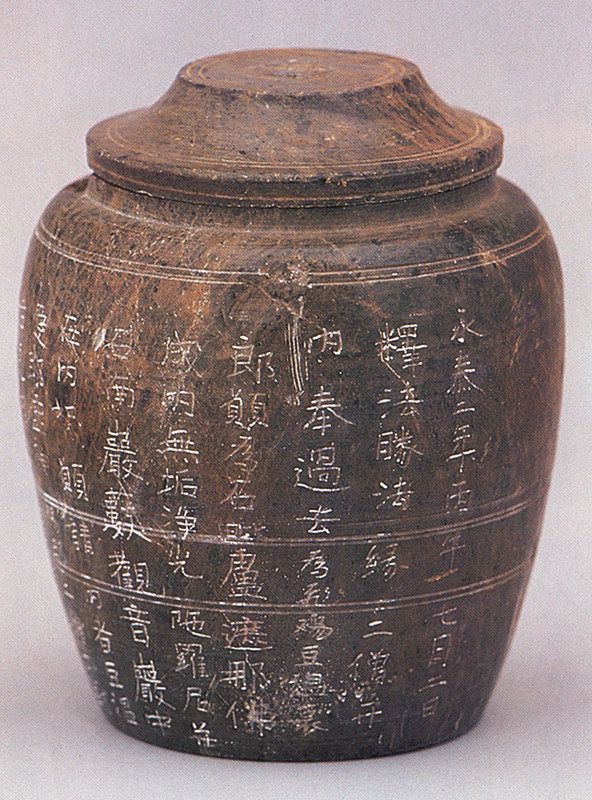 永泰二年丙午七月二日
釋法勝法緣二僧并
内奉過去爲飛賜豆温哀
郎願爲石毗盧遮那佛
成内無垢淨光陁羅尼并
石南巖藪觀音巖中
在内如願請内者豆温